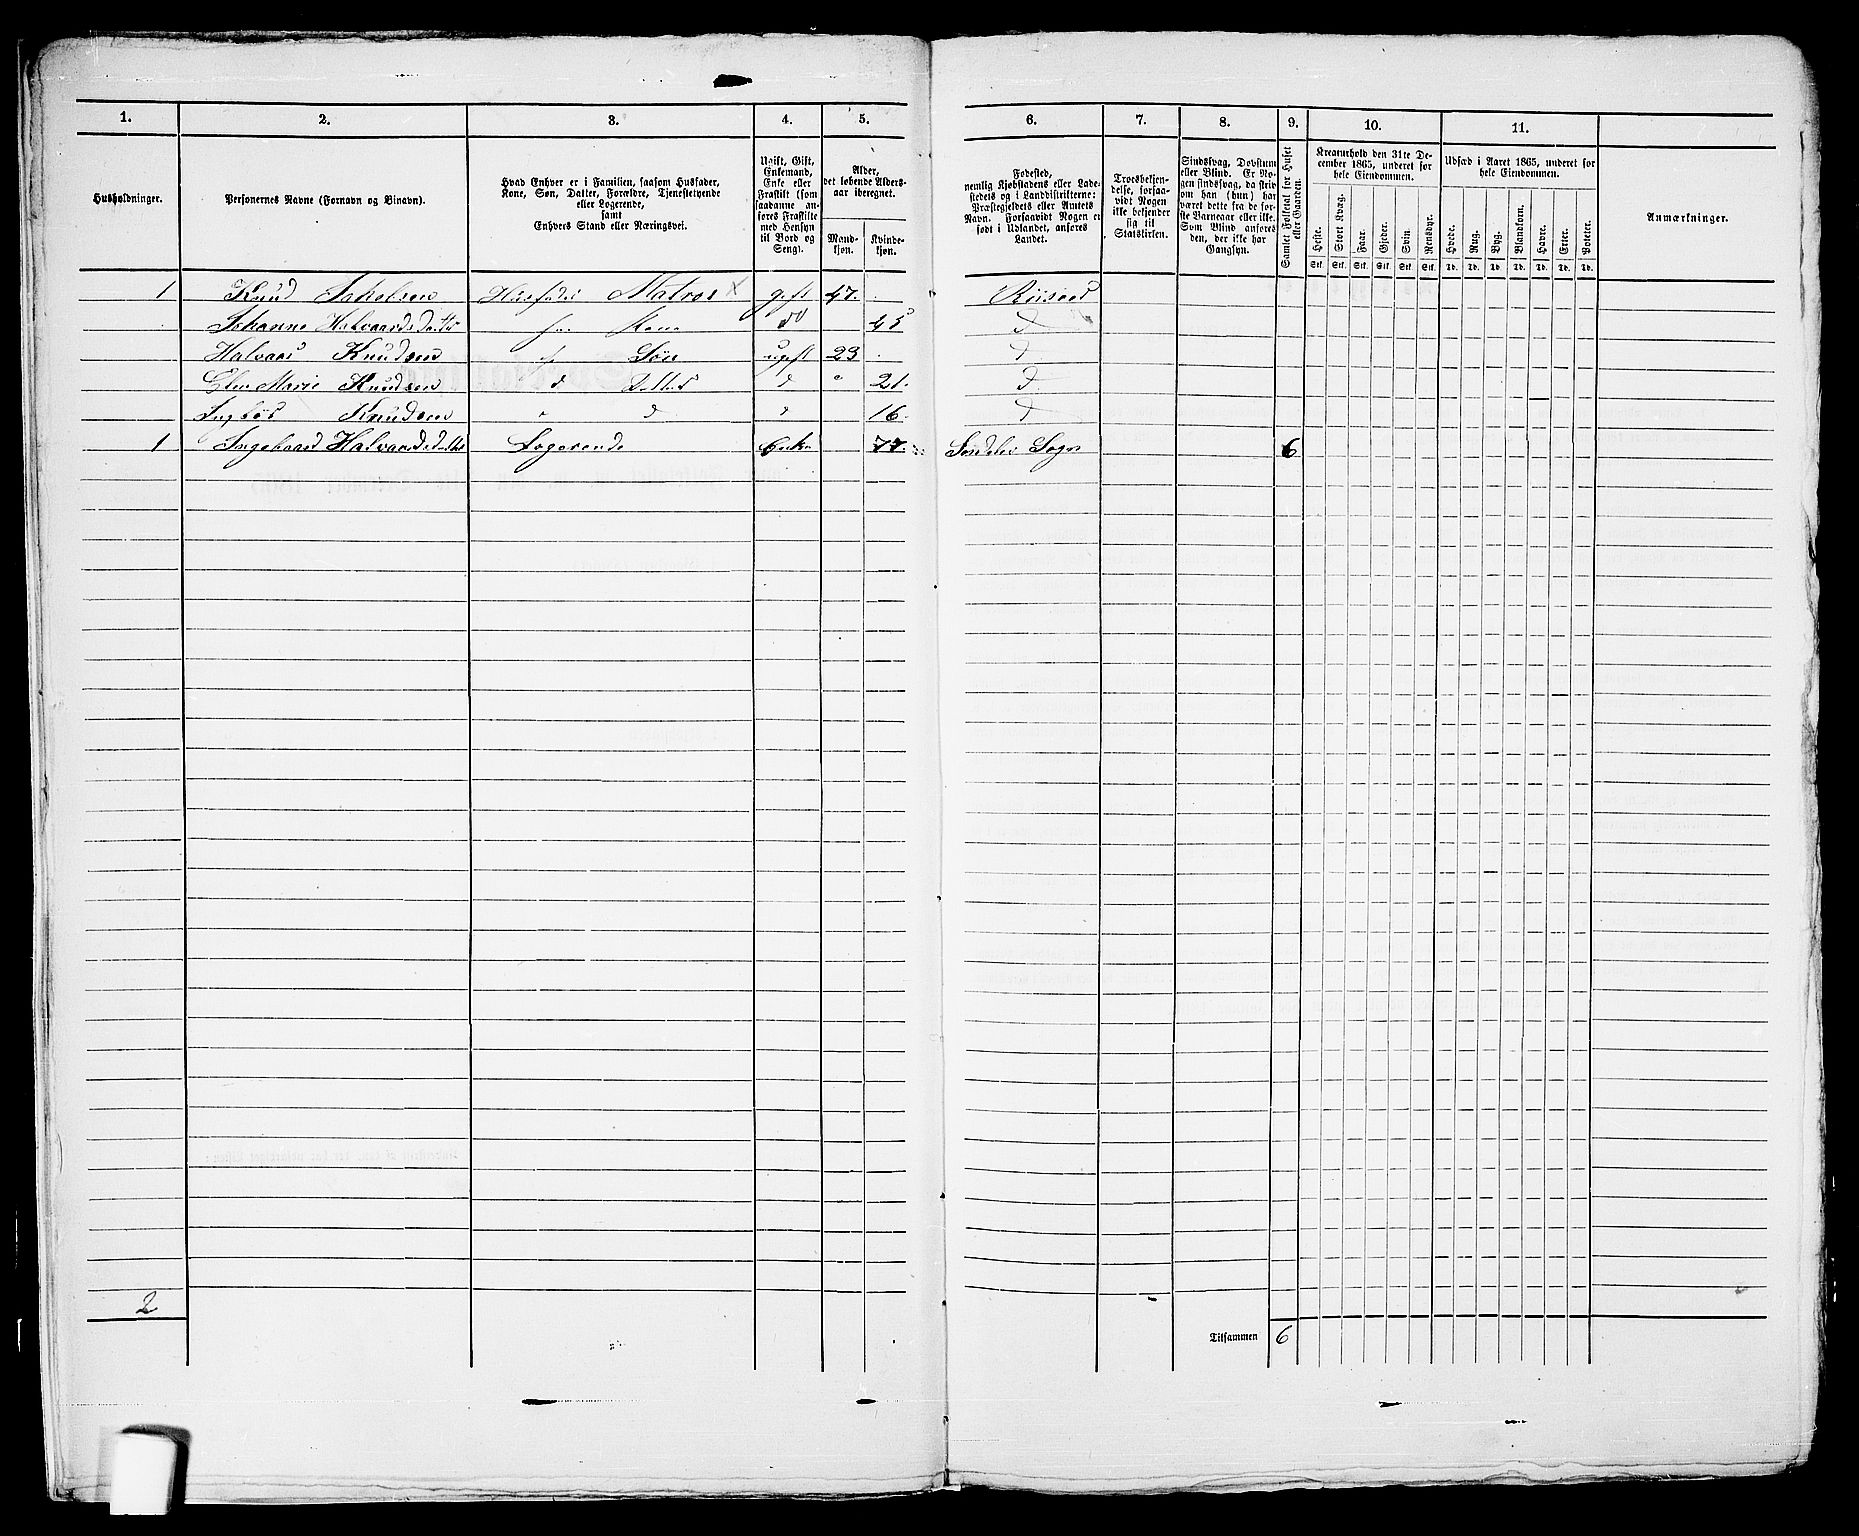 1. 2. 3. 4. 5. 6. 7. 8. 9. 10. 11.
Husholdninger.
Personernes Navne (Fornavn og Binavn).
Hvad Enhver er i Familien, saasom Husfader,
Kone, Søn, Datter, Forældre, Tjenestetyende
eller Logerende,
samt
Enhvers Stand eller Næringsvei.
Ugift, Gift,
Enkemand,
Enke eller
Fraskilt (som
saadanne an-
føres Fraskilte
med Hensyn
til Bord og
Seng).
Alder,
det løbende Alders-
aar iberegnet.
Mand-
kjøn.
Kvinde-
kjøn.
Fødested,
nemlig Kjøbstadens eller Lade-
stedets og i Landdistrikterne:
Præstegjeldets eller Amtets
Navn. Forsaavidt Nogen er
født i Udlandet, anføres
Landet.
Troesbekjen-
delse, forsaa-
vidt Nogen
ikke bekjender
sig til
Statskirken.
Sindssvag, Døvstum
eller Blind. Er No-
gen sindssvag, da skriv
om han (hun) har
været dette fra de før-
ste Barneaar eller ikke.
Som Blind anføres
den, der ikke har
Gangsyn.
Samlet Folketal for Huset
eller Gaarden.
Kreaturhold den 31te De-
cember 1865, underet for
hele Eiendommen.
Heste. Stort Kvæg. Faar. Gjeder. Svin. Rensdyr.
Stk. Stk. Stk. Stk. Stk. Stk.
Udsæd i Aaret 1865, underet for
hele Eiendommen.
Hvede. Rug. Byg. Blandkorn. Havre. Erter. Poteter.
Td. Td. Td. Td. Td. Td. Td.
Anmærkninger.
1 Knud Husfader Matros x gift 47. Riisøer
Johanne Halvaardsdatter Kone do 45 d
Halvaar Knudsen Søn ugift 23 d
Elen Marie Knudsen d Datter d " 21. d
Ingbør Knudsen " d d 16. d
1 Halvaardsdatter Logerende Enke 77. Søndeler Sogn 6
2
Tilsammen 6